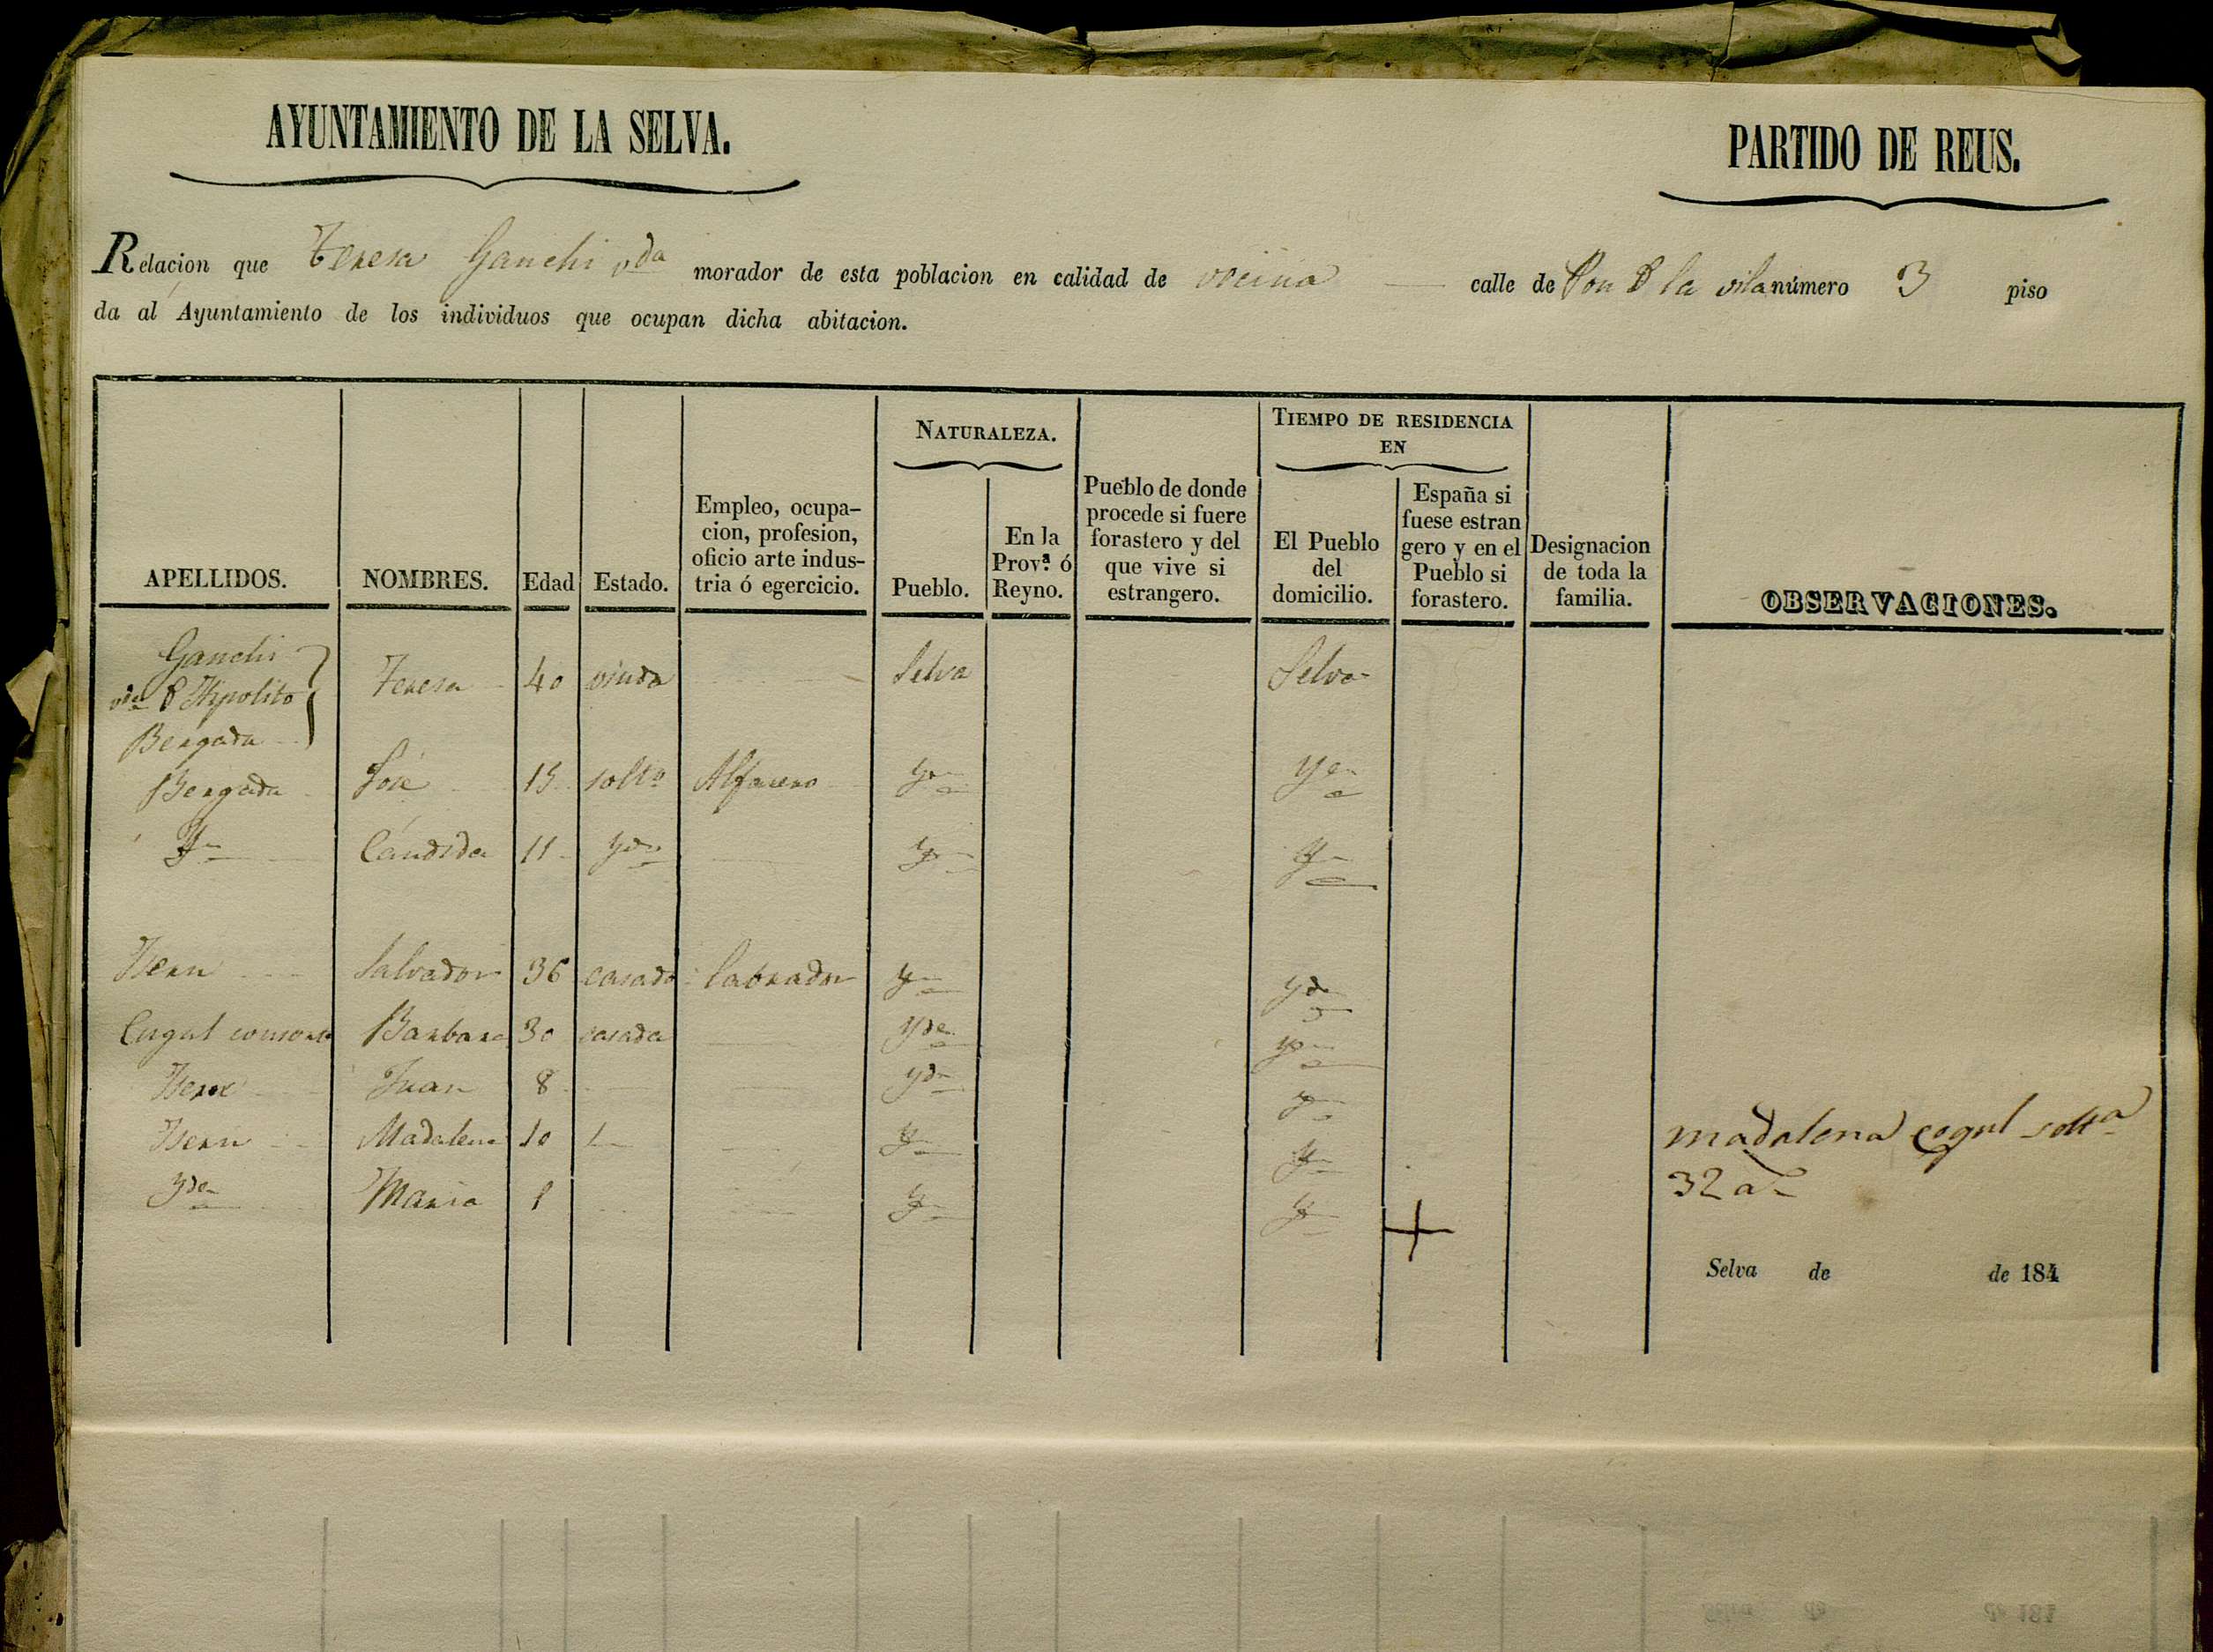 AYUNTAMIENTO DE LA SELVA.
PARTIDO DE REUS.
Relacion que Teresa Ganchi vda morador de esta poblacion en calidad de vecina calle de Pou d la vila número 3 piso
da al Ayuntamiento de los individuos que ocupan dicha abitacion.
NATURALEZA.
TIEMPO DE RESIDENCIA EN
APELLIDOS. NOMBRES. Edad Estado. Empleo, ocupacion, profesion, oficio arte industria ó egercicio. Pueblo. En la Prov.ª ó Reyno. Pueblo de donde procede si fuere forastero y del que vive si estrangero. El Pueblo del domicilio. España si fuese estrangero y en el Pueblo si forastero. Designacion de toda la familia. OBSERVACIONES.
Ganchi
vda d Hipolito Teresa 40 viuda Selva Selva
Bergada
Bergada José 15 solto Alfarero yd yd
Yd Cándida 11 yd yd yd
Salvador 36 casado labrador yd yd
Cugul consorte Barbara 30 casada yd yd
Juan 8 yd yd
Madalena 10 yd yd
yd Maria 1 yd yd
madalena cogul solta
32 a
Selva de de 184